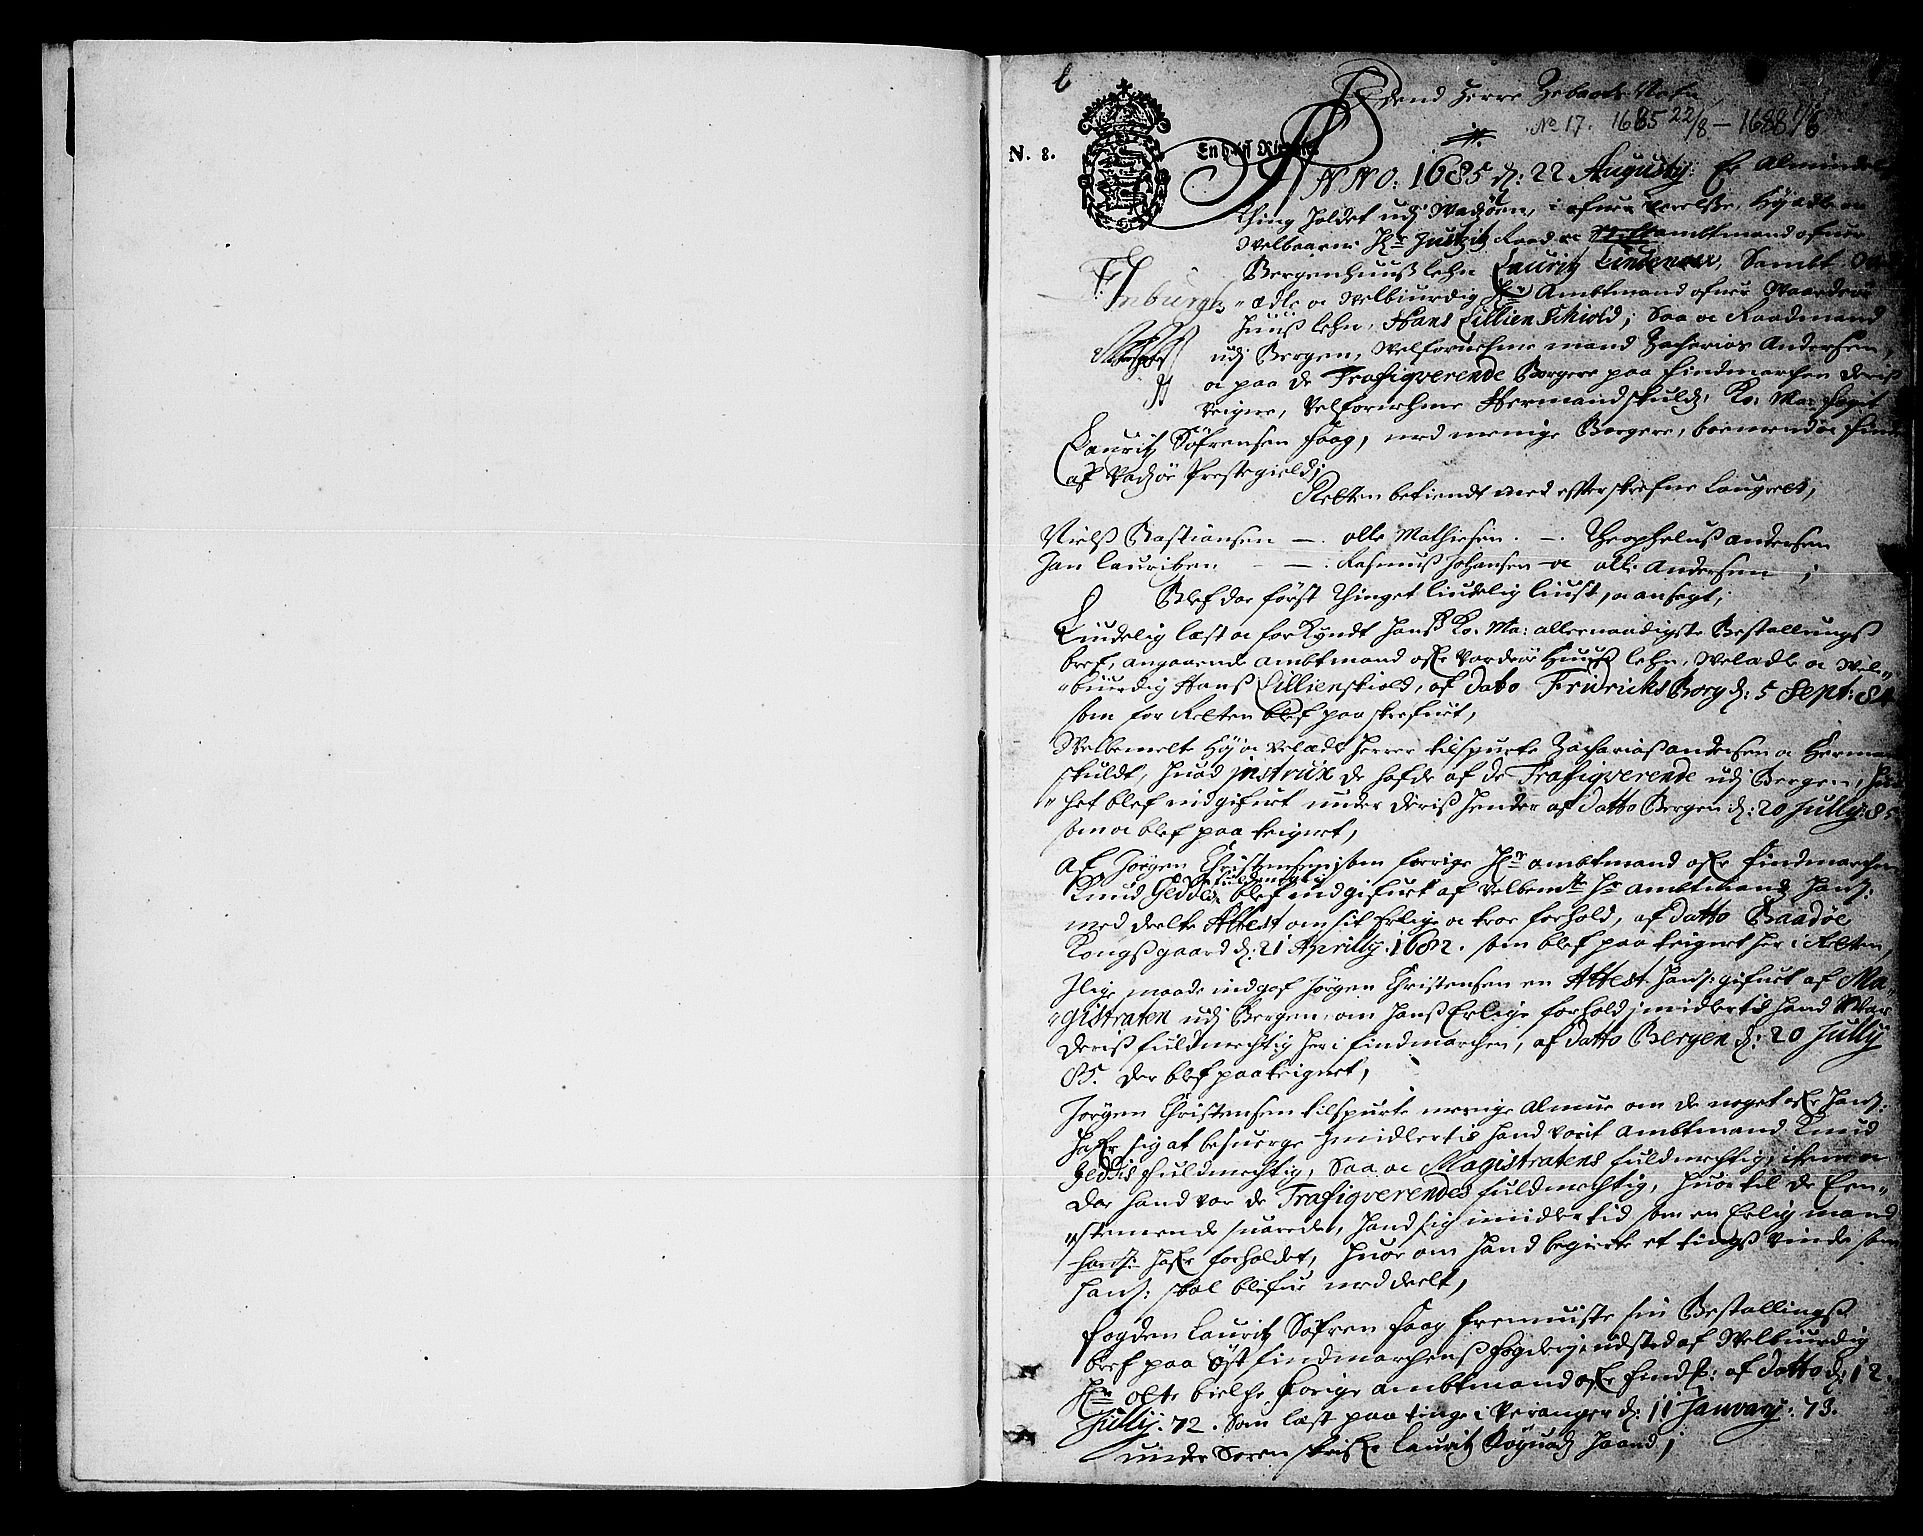 N. 8.
En half Rixdaler
No 17. 1685 22/8 – 1688 1/8
ANNO: 1685 d: 22 Augustij: Er Almindel:
Ting Holdet udj Wadsøen, i ofuer værelse, Høyædle oc
Velbaarne Hr. Justitz Raad oc Stiftambtmand ofuer
Bergenhuuss lehn Lauritz Lindenow, Sambt
ædle oc Velbiurdig Hr Ambtmand ofuer Waardøe
huuss lehn, Hans Lillienschiold; saa oc Raadmand
udj Bergen, Velfornehme mand Zacharias Andersen,
oc paa de Trafiqverende Borgere paa Findmarchen deris
veigne, Velfornehme Herman Skuldt, Ko: Ma: foget
Lauritz Søfrensen Haag, med menige Borgere, boemend oc Finder
af Vadsøe Prestegield;
Retten betiendt med efterskrefne Laugrett,
Niels Bastiansen —. Olle Mathisen. —. Theophelus Andersen
Jan Lauritzen — . Rasmus Johansen – oc Olle Andersen;
Blef da først Tinget liudelig liust, oc ansagt;
Liudelig læst oc forkyndt Hanss Ko: Ma: allernaadigste Bestallings
bref, angaaende ambtmand ofr Vardøe Huuss lehn, Velædle oc vel-
"biurdig Hans Lillienskiold, af Dato Fridricks Borg d: 5 Sept: 84
som for Retten blef paaskrefuet,
Velbemelte Høy oc velædle Herrer tilspurte Zacharias Andersen oc Herman
Skuldt, huad instrux de hafde af de Trafiqverende udj Bergen,
het blef indgifuet under deris hender af Datto Bergen d: 20 Jullij: 85
som oc blef paa teignet,
Af Jørgen Christensen som forrige Hr ambtmand ofr Findmarchen
Knud Geddes fuldmegtig blef indgifuet af velbemte Hr ambtmand hans:
med deelte Attest om sit Erlige oc troe forhold, af Datto Baadøe
Kongssgaard d: 21 Aprilly. 1682. som blef paa teignet her i Retten,
Jlige maade indgaf Jørgen Christensen en Attest hans: gifuet af Ma-
"gistraten udj Bergen, om hanss Erlige forhold jmidlertid hand Var
deriss fuldmegtig her i Findmarchen, af Datto Bergen d: 20 Jully
85. der blef paateignet,
Jørgen Christensen tilspurte menige Almue om de noget ofr hans:
hafr sig at besuerge Jmidlertid hand vaerit Ambtmand Knud
Geddis fuldmegtig, Saa oc Magistratens fuldmegtig, item
der hand var de Trafiqverendes fuldmegtig, huor til de Een-
"stemmende suarede, hand sig imidlertid som en Erlig mand
hafr forholdet, huor om hand begierte et tings vinde som
hans: skal blifue med deelt,
Fogden Lauritz Søfren Haag fremuiste sin Bestallings
bref paa Øst Findmarchens fogderj, udsted af Velbiurdig
Hr Otte Bielke forige ambtmand ofr Findm: af Datto d: 12
Jullij. 72. Som læst paa tinge i Veranger d: 11 January. 73.
under Sorenskrifr Lauritz haand;